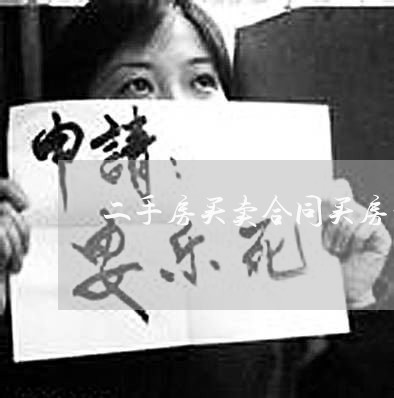 申請：
二手房买卖合同买房
要乐死